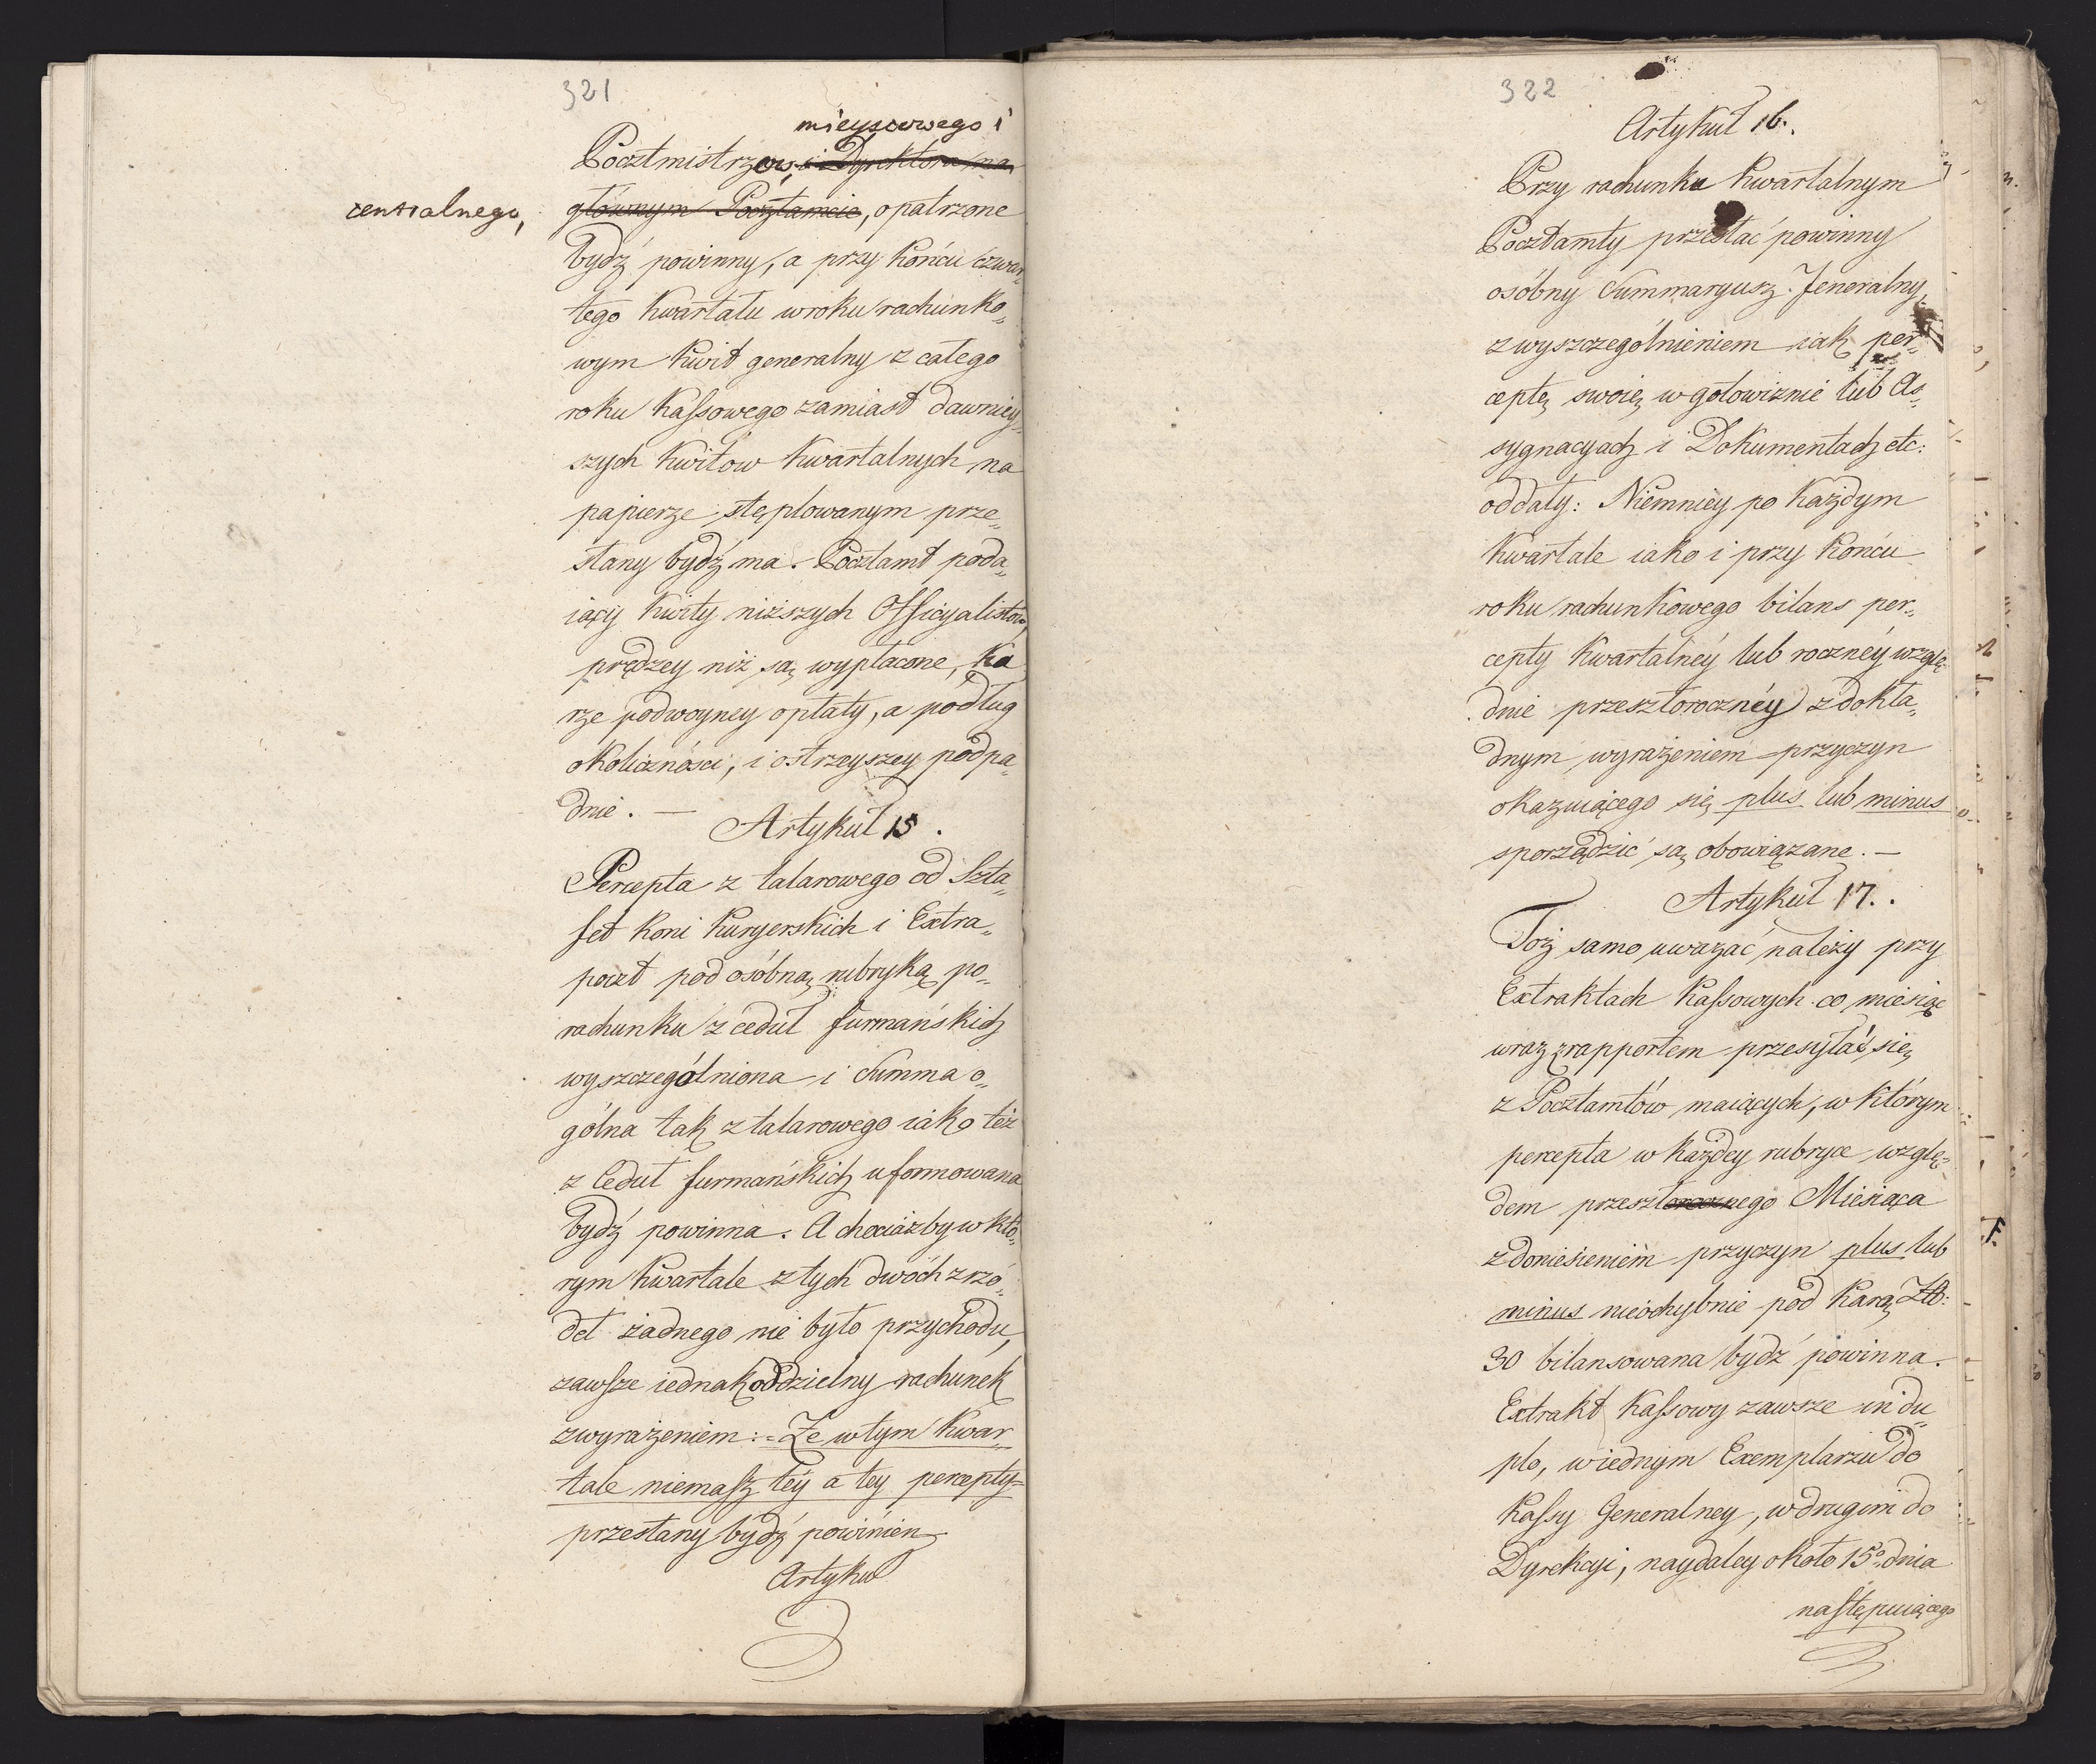 321
mieyscowego i
Pocztmistrzow, i Dyrektora na
centralnego,
głównym Pocztamcie, opatrzone
bydź powinny, a przy końcu czwar„
tego Kwartału w roku rachunko„
wym Kwit generalny z całego
roku Kassowego zamiast dawniey„
szych Kwitow Kwartalnych na
papierze stęplowanym prze„
słany bydź ma. Pocztamt poda„
iący Kwity niższych Officyalistow,
prędzey niż są wypłacone, Ka
rze podwoyney opłaty, a podług
okoliczności, i ostrzeyszey podpa„
dnie. —
Artykuł 15.
Percepta z talarowego od Szta„
fet koni Kuryerskich i Extra„
poczt pod osóbną rubryką po„
rachunku z cedul furmańskich
wyszczególniona i Summa o„
gólna tak z talarowego iako też
z Cedul furmańskich uformowana
bydź powinna. A chociażby w któ„
rym Kwartale z tych dwóch zrzó„
deł żadnego nie było przychodu,
zawsze iednak oddzielny rachunek
z wyrażeniem:= Że w tym Kwar„
tale niemasz tey a tey percepty=
przesłany bydź powinien
Artykuł
322
Artykuł 16.
Przy rachunku Kwartalnym
Pocztamty przesłać powinny
osóbny Summaryusz Jeneralny
z wyszczególnieniem iak per„
ceptę swoię w gotowiznie lub As„
sygnacyach i Dokumentach etc:
oddały: Niemniey po Każdym
Kwartale iako i przy Końcu
roku rachunkowego bilans per„
cepty Kwartalney lub roczney wzglę„
dnie przeszłoroczney z dokła„
dnym wyrażeniem przyczyn
okazuiącego się plus lub minus
sporządzić są obowiązane. —
Artykuł 17..
Toż samo uważać należy przy
Extraktach Kassowych co miesiąc
wraz z rapportem przesyłać się
z Pocztamtów maiących, w którym
percepta w każdey rubryce wzglę„
dem przeszłorocznego Miesiąca
z doniesieniem przyczyn plus lub
minus nieochybnie pod karą Złł:
30 bilansowana bydź powinna.
Extrakt Kassowy zawsze in du„
plo, w iednym Exemplarzu do
Kassy Generalney, w drugim do
Dyrekcyi, naydaley około 15o dnia
następuiącego